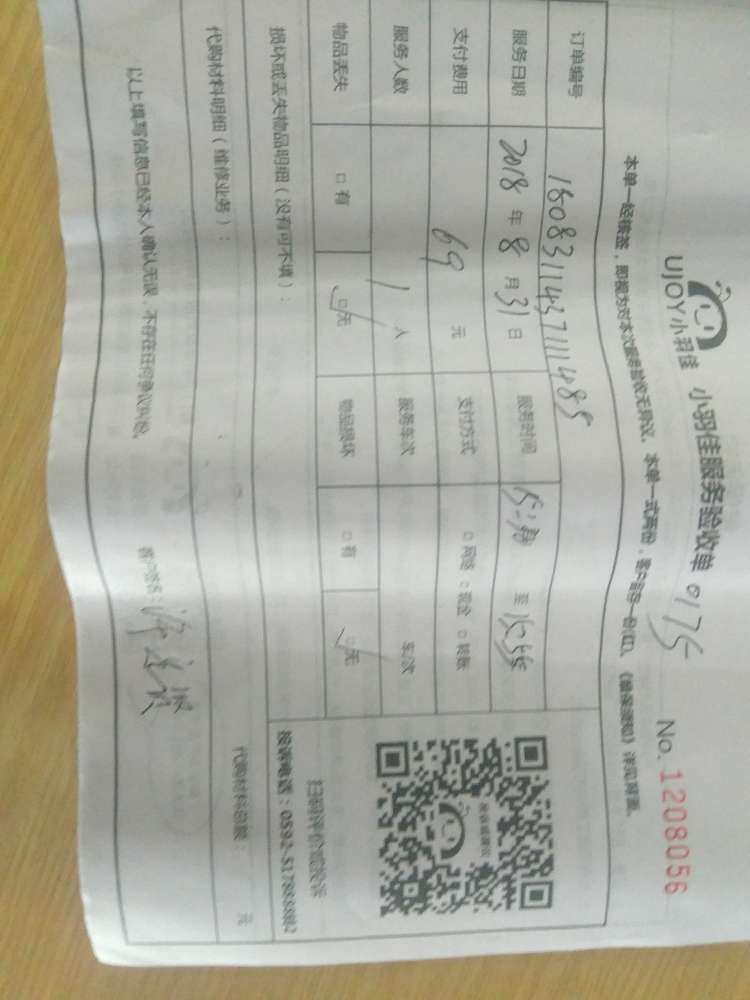 UJOY小羽佳 小羽佳服务验收单 0175 No. 1208056
本单一经核签，即视为对本次服务验收无异议。本单一式两份，客户留存一份(红)。
订单编号 1808311437111485
服务日期 2018 年 8 月 31 日 服务时间 至
支付费用 69 元 支付方式 □ 网络 □ 现金 □ 转账
服务人数 1 人 服务车次 车/次
物品丢失 □ 有 □ 无 物品损坏 □ 有 □ 无
损坏或丢失物品明细（没有可不填）：
扫码评价或投诉
投诉电话：0592-517888882
代购材料明细（维修业务）：
代购材料总额： 元
以上填写信息已经本人确认无误，不存在任何争议纠纷。 客户签名：